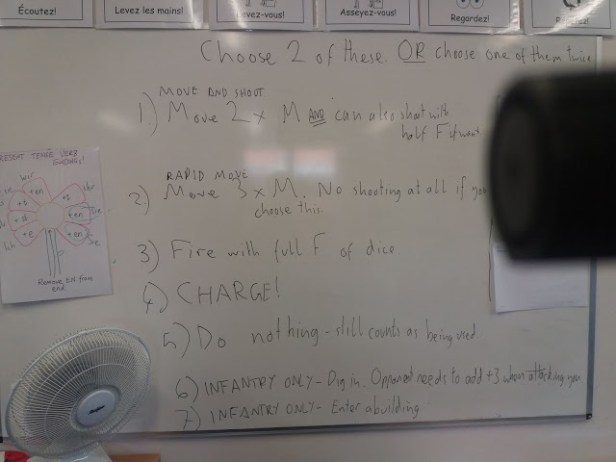 Écoutez!
Levez les mains!
evez-vous!
Asseyez-vous!
Regardez!
Choose 2 of these. OR choose one of them twice
MOVE AND SHOOT
1.) Move 2 x M AND can also shoot with
half F if want
RAPID MOVE
2) Move 3 x M. No shooting at all if you
choose this.
3) Fire with full F of dice
4) CHARGE!
5) Do nothing - still counts as being used
6) INFANTRY ONLY - Dig in. Opponent needs to add +3 when attacking you
7) INFANTRY ONLY - Enter a building
RESENT TENSE VERB
ENDINGS!
wir
+en
+t
+en
+en
Remove EN from
end